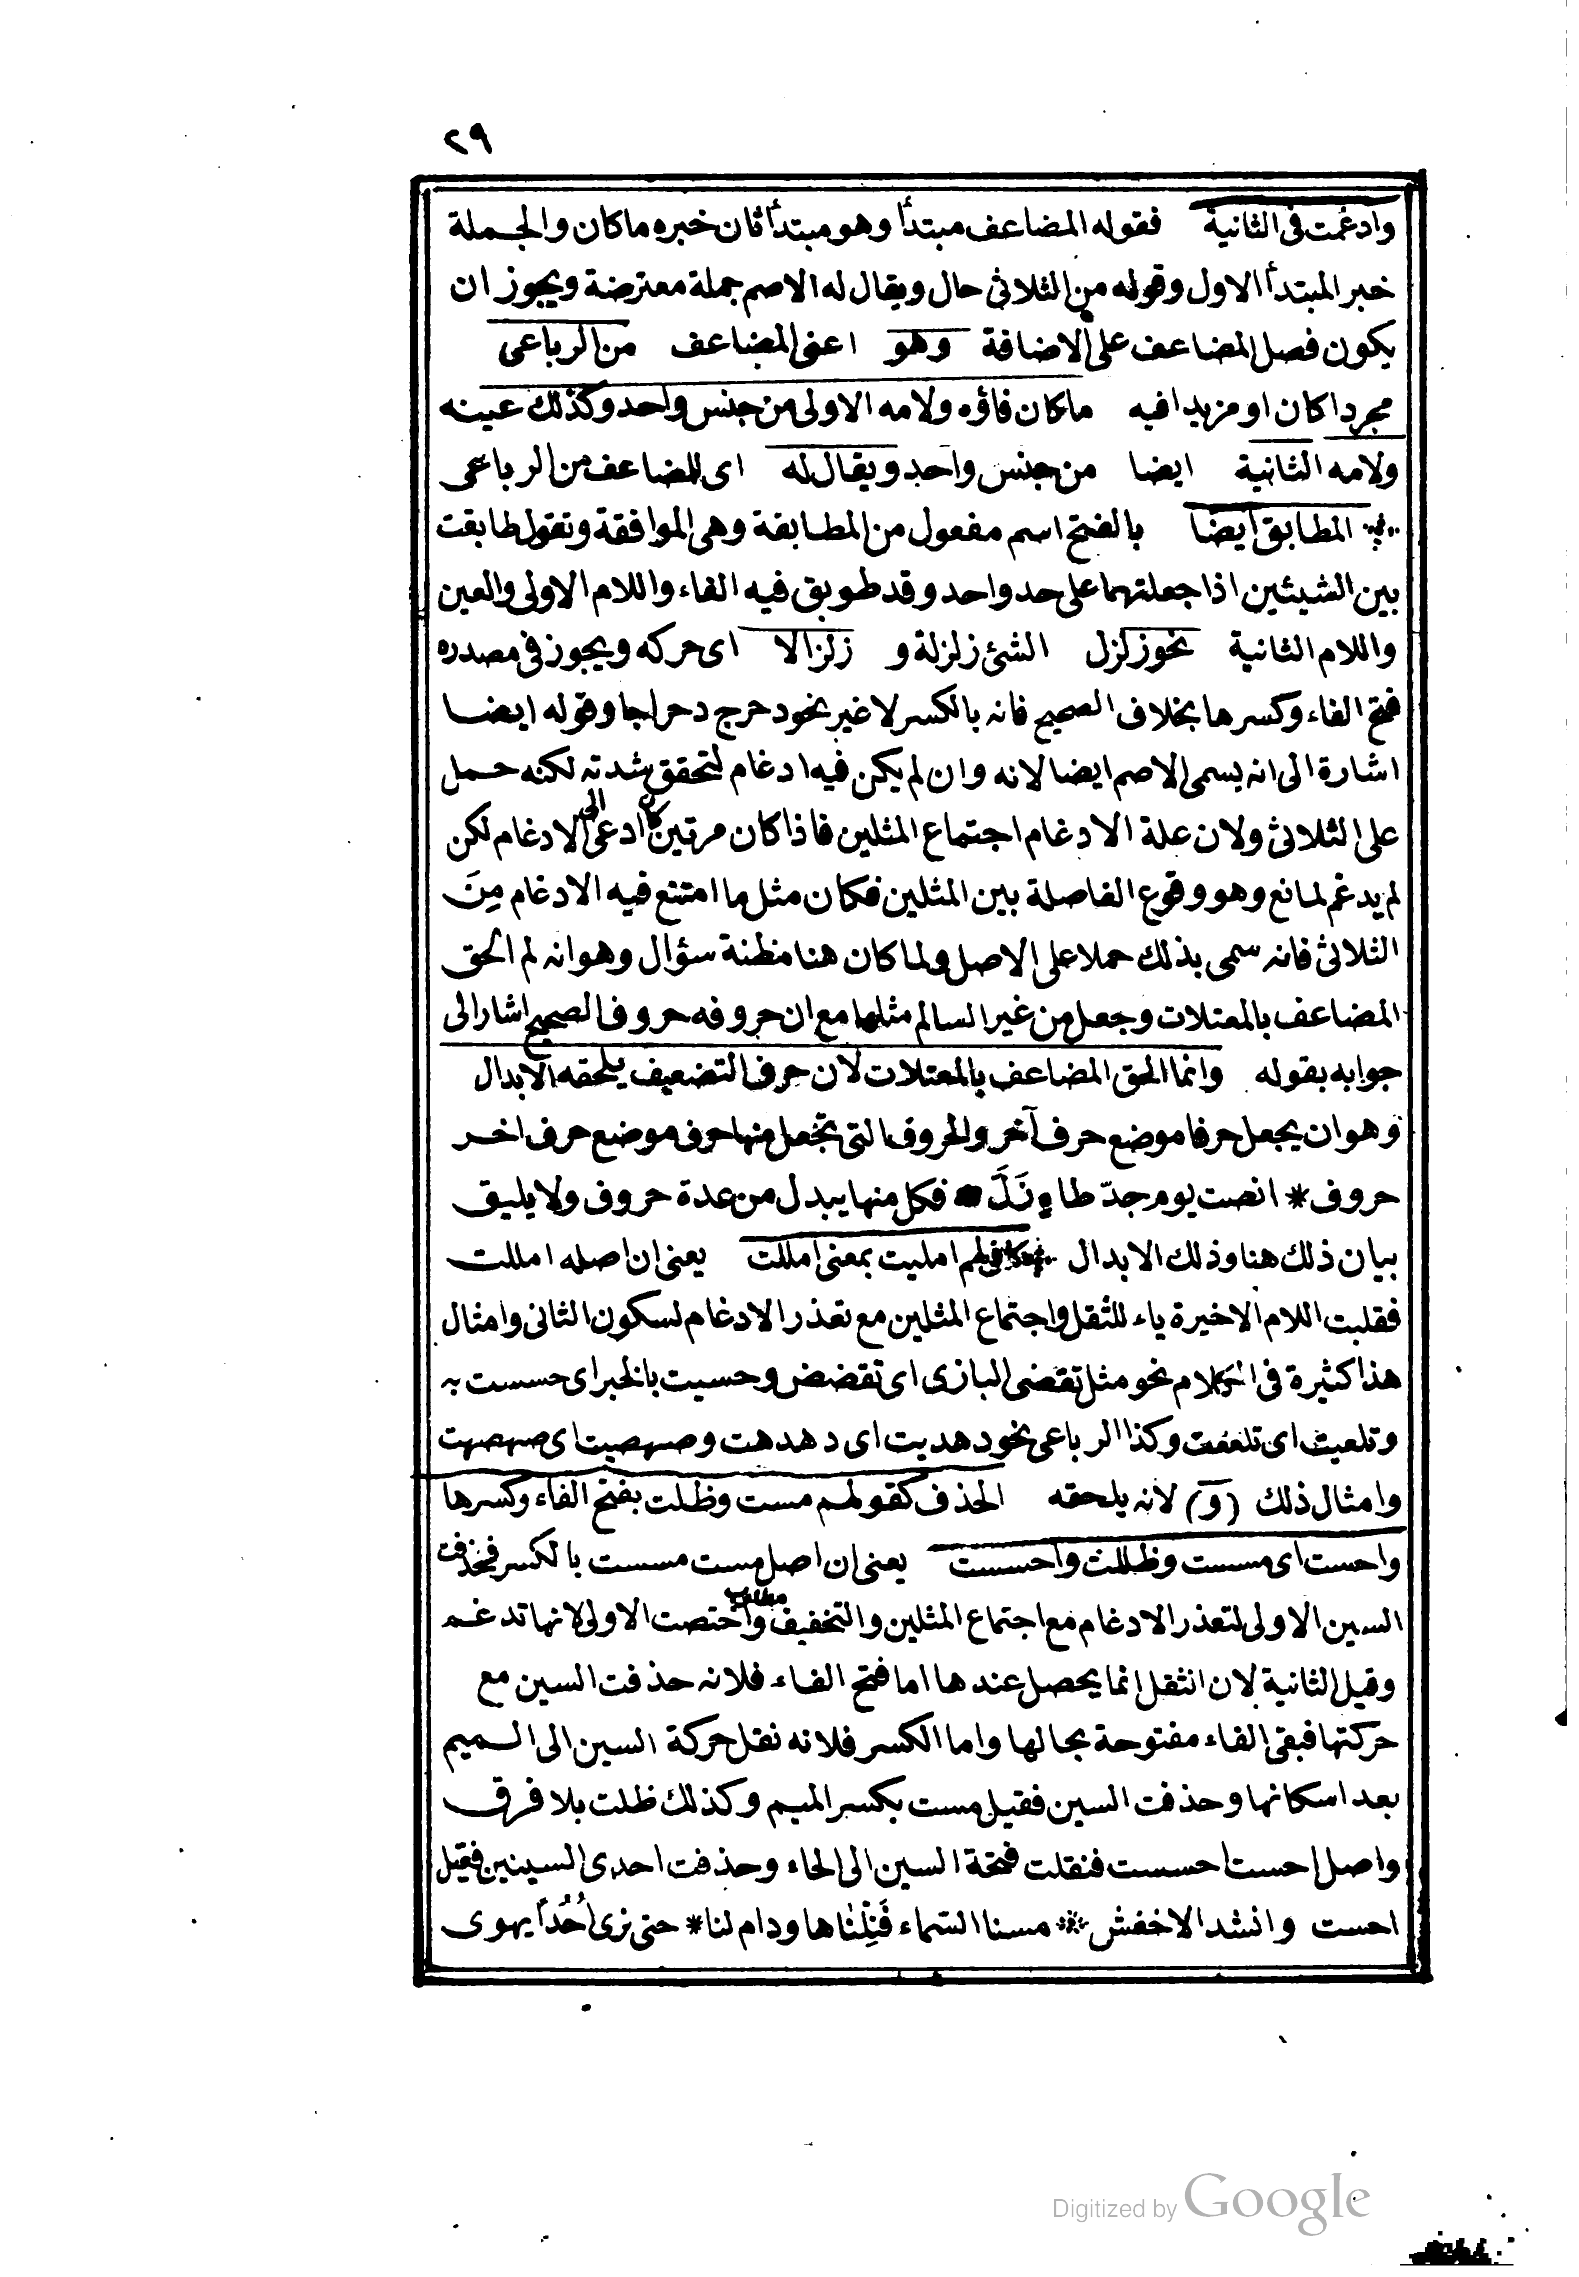 ٢٩
وادغمت فى الثانية فقوله المضاعف مبتدأ وهو مبتدأ ثان خبره ما كان والجملة
خبر المبتدأ الاول وقوله من الثلاثى حال ويقال له الاصم جملة معترضة ويجوز ان
يكون فصل المضاعف على الاضافة وهو اعنى المضاعف من الرباعى
مجردا كان او مزيدا فيه ما كان فاؤه ولامه الاولى من جنس واحد وكذلك عينه
ولامه الثانية ايضا من جنس واحد ويقال له اى للمضاعف من الرباعى
المطابق ايضا بالفتح اسم مفعول من المطابقة وهى الموافقة وتقول طابقت
بين الشيئين اذا جعلتهما على حد واحد وقد طوبق فيه الفاء واللام الاولى والعين
واللام الثانية نحو زلزل الشئ زلزلة و زلزالا اى حركه ويجوز فى مصدره
فتح الفاء وكسرها بخلاف الصحيح فانه بالكسر لا غير نحو دحرج دحراجا وقوله ايضا
اشارة الى انه يسمى الاصم ايضا لانه وان لم يكن فيه ادغام لتحقق شدته لكنه حمل
على الثلاثى ولان علة الادغام اجتماع المثلين فاذا كان مرتين كان ادعى الى الادغام لكن
لم يدغم لمانع وهو وقوع الفاصلة بين المثلين فكان مثل ما امتنع فيه الادغام مِنَ
الثلاثى فانه سمى بذلك حملا على الاصل ولما كان هنا مظنة سؤال وهو انه لم الحق
المضاعف بالمعتلات وجعل من غير السالم مثلها مع ان حروفه حروف الصحيح اشار الى
جوابه بقوله وانما الحق المضاعف بالمعتلات لان حرف التضعيف يلحقه الابدال
وهو ان يجعل حرفا موضع حرف آخر والحروف التى تجعل منها حرف موضع حرف اخر
حروف * انصت يوم جدّ طاءٍ زَلَّ فكل منها يبدل من عدة حروف ولا يليق
بيان ذلك هنا وذلك الابدال امليت بمعنى امللت يعنى ان اصله امللت
فقلبت اللام الاخيرة ياء للثقل واجتماع المثلين مع تعذر الادغام لسكون الثانى وامثال
هذا كثيرة فى الكلام نحو مثل تقضى البازى اى تقضض وحسيت بالخبر اى حسست به
وتلعيت اى تلععت وكذا الرباعى نحو دهديت اى دهدهت وصهصيت اى صهصهت
وامثال ذلك (و) لانه يلحقه الحذف كقولهم مست وظلت بفتح الفاء وكسرها
واحست اى مسست وظللت واحسست يعنى ان اصل مست مسست بالكسر فحذفت
السين الاولى لتعذر الادغام مع اجتماع المثلين والتخفيف مطلوب واختصت الاولى لانها تدغم
وقيل الثانية لان الثقل انما يحصل عندها اما فتح الفاء فلانه حذفت السين مع
حركتها فبقى الفاء مفتوحة بحالها واما الكسر فلانه نقل حركة السين الى الميم
بعد اسكانها وحذفت السين فقيل مست بكسر الميم وكذلك ظلت بلا فرق
واصل احست احسست فنقلت فتحة السين الى الحاء وحذفت احدى السينين فقيل
احست وانشد الاخفش * مسنا السماء فَنِلْنَاها ودام لنا * حتى نرى اُحُدًا يهوى
Digitized by Google